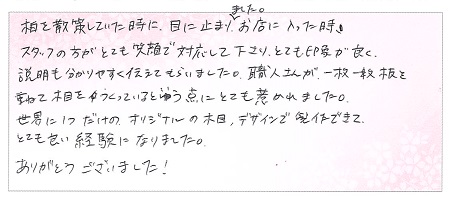 ました。
柏を散策していた時に、目に止まり、お店に入った時、
スタッフの方がとても笑顔で対応して下さり、とても印象が良く、
説明も分かりやすく伝えてもらいました。職人さんが、一枚一枚板を
重ねて木目をつくっているという点にとても惹かれました。
世界に1つだけの、オリジナルの木目、デザインで製作できて
とても良い経験になりました。
ありがとうございました!